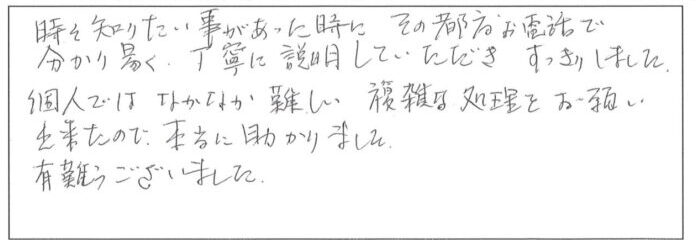 時々知りたい事があった時に その都度お電話で
分かり易く、丁寧に説明していただき すっきりしました。
個人ではなかなか難しい 複雑な処理をお願い
出来たので、本当に助かりました。
有難うございました。